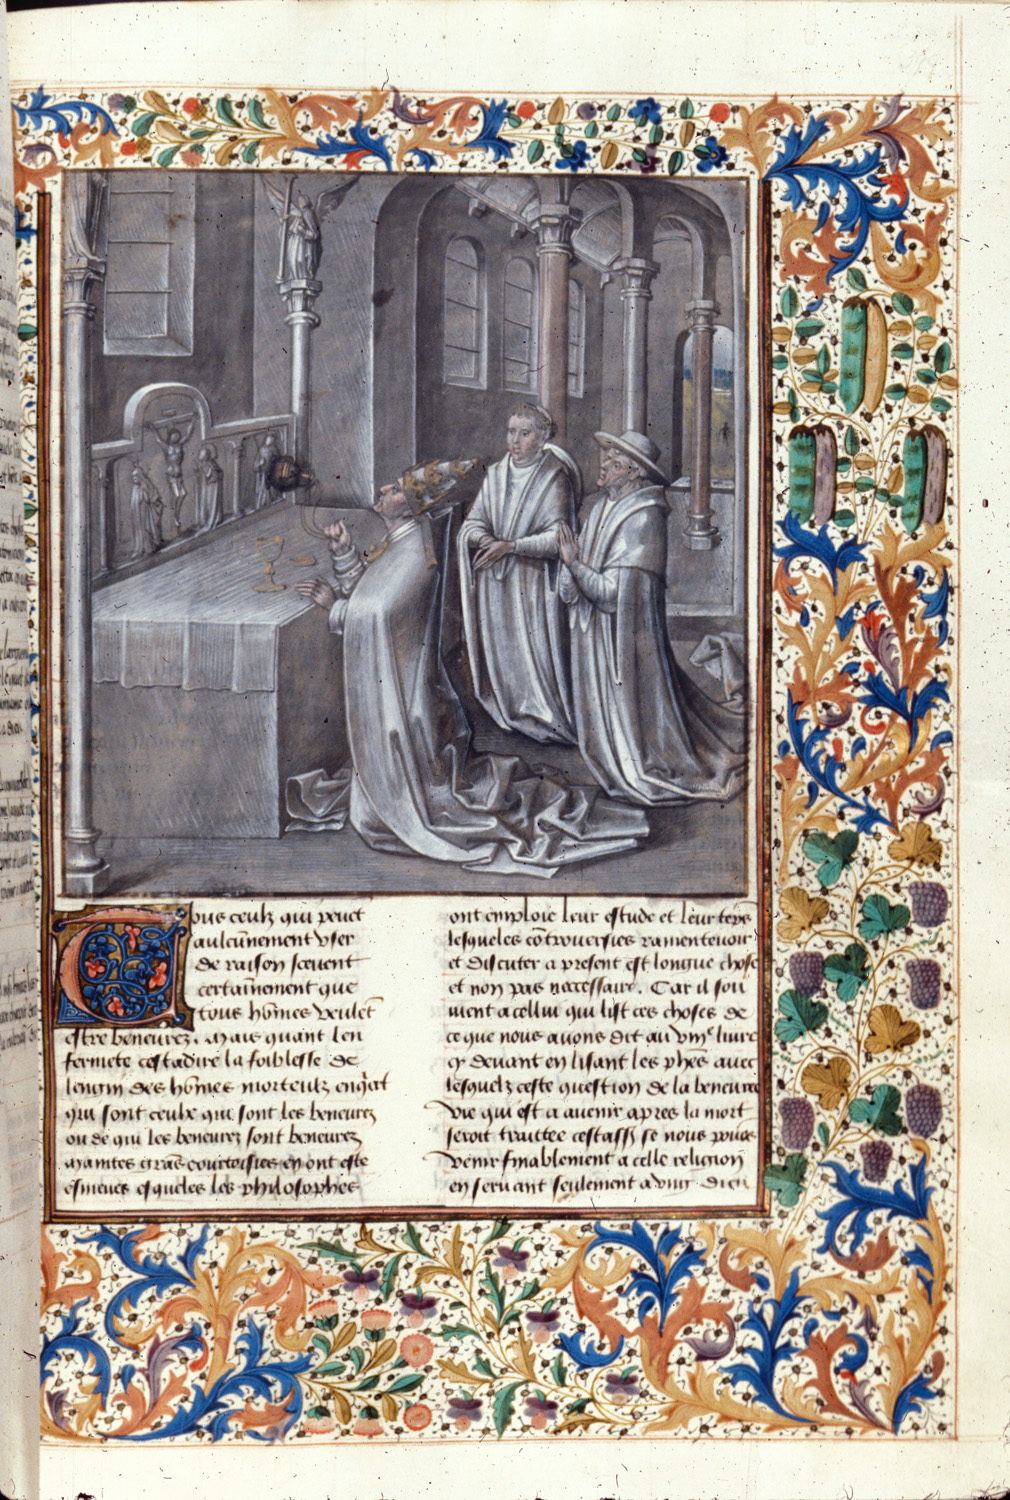 Tous ceulz qui peuet
aulcunnement vser
de raison scevent
certainnement que
tous hōmes veulēt
estre beneurez. Mais quant len
fermete cest adire la foiblesse de
lengin des hōmes morteulz enq̄rāt
qui sont ceulx qui sont les beneurez
ou de qui les beneurez sont beneurez
maintes grās courtoisies en ont este
esmeues esqueles les philosophes
ont emploie leur estude et leur tēps
lesqueles cōtrouersies ramenteuoir
et discuter a present est longue chose
et non pas necessaire. Car il sou
uient a cellui qui list ces choses de
ce que nous auons dit au viiie liure
cy deuant en lisant les phēs auec
lesquelz ceste question de la beneuree
vie qui est a auenir apres la mort
seroit traittee cestassr se nous poūōs
venir finablement a celle religion
en seruant seulement a vng dieu